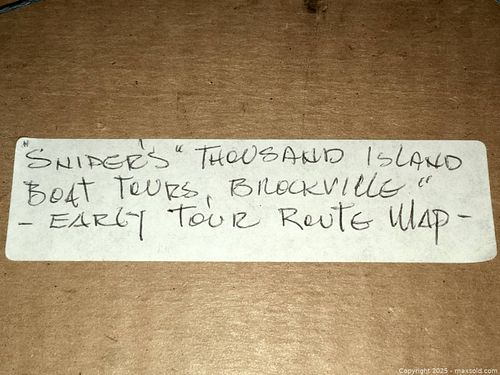 "SNIDER'S" THOUSAND ISLAND
BOAT TOURS, BROCKVILLE"
- EARLY TOUR ROUTE MAP -
Copyright 2025 - maxsold.com